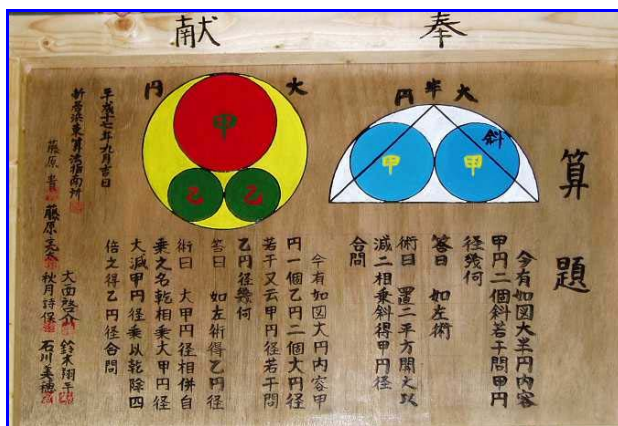 奉献
算題
大半円
斜
甲
甲
今有如図大半円内容
甲円二個斜若干問甲円
径幾何
答曰 如左術
術曰 置二平方開之以
減二相乗斜得甲円径
合問
大円
甲
乙
乙
今有如図大円内容甲
円一個乙円二個大円径
若干又云甲円径若干問
乙円径幾何
答曰 如左術得乙円径
術曰 大甲円径相併自
乗之名乾相乗大甲円径
大減甲円径乗以乾除四
倍之得乙円径合問
平成十七年九月吉日
新居浜東算法指南所
鈴木翔平
石川美穂
秋月詩保
藤原亮太
藤原貴